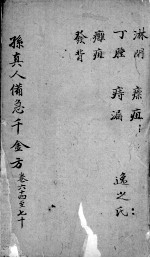 淋閉 瘭疽
丁腫 痔漏
癰疽
發背
逸之氏
孫真人備急千金方 卷六十四至七十